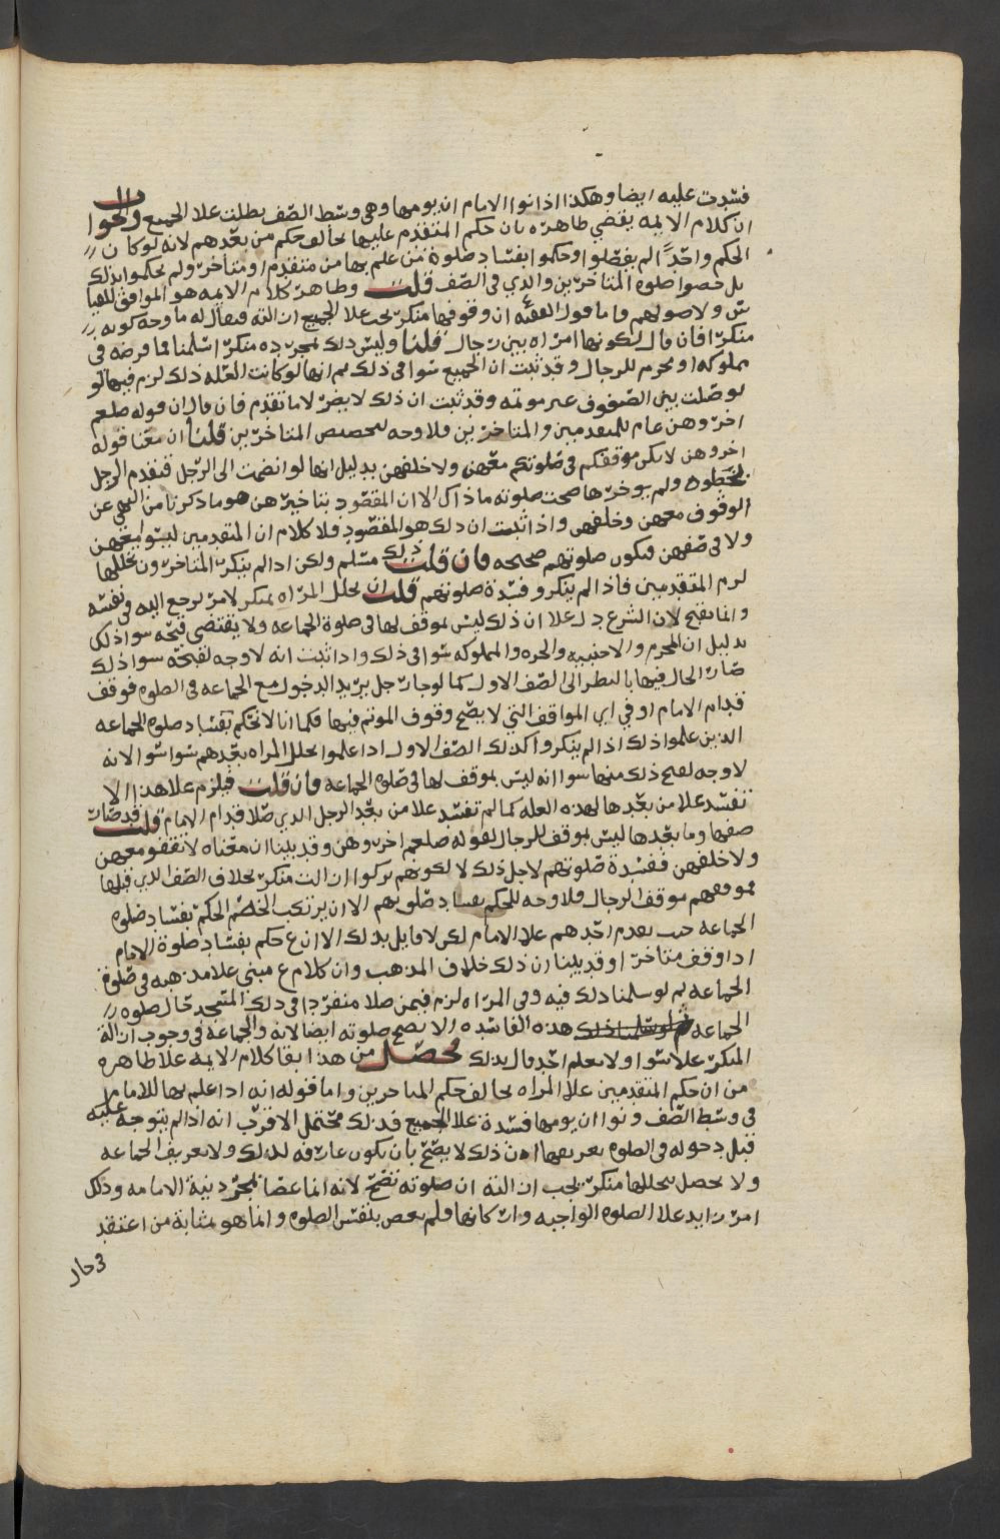 فسدت عليه ايضا وهكذا اذا نوا الامام ان يومها وهي وسط الصف بطلت علا الجميع والجواب
ان كلام الايمه يقضي ظاهره بان حكم المتقدم عليها يخالف حكم من بعدهم لانه لو كان
الحكم واحدًا لم يفصلوا وحكموا بفساد صلوة من علم بها من متقدم او متاخر ولم يحكموا بذلك
بل خصوا صلوه المتاخرين والذي في الصف قلت وظاهر كلام الايمه هو الموافق للقيا
س ولاصولهم واما قول الفقيه ان وقوفها منكر يجب علا الجميع ازالته فيقال له ما وجه كونه
منكرا فان قال لكونها امراه بين رجال قلنا وليس ذلك بمجرده منكرا سلمنا فما فرضه في
مملوكه او محرم للرجال وقد ثبت ان الجميع سوا في ذلك ثم انها لو كانت العله ذلك لزم فيها لو
توصلت بين الصفوف غير موتمه وقد ثبت ان ذلك لا يضر لما تقدم فان قال ان قوله صلعم
اخروهن عام للمتقدمين والمتاخرين فلا وجه لتخصيص المتاخرين قلنا ان معنا قوله
اخروهن لا يكن موقفكم في صلوتكم معهن ولا خلفهن بدليل انها لو انضمت الى الرجل فتقدم الرجل
بخطوه ولم يوخرها صحت صلوته ما ذاك الا ان المقصود بتاخيرهن هو ما ذكرنا من النهي عن
الوقوف معهن وخلفهن واذا ثبت ان ذلك هو المقصود فلا كلام ان المتقدمين ليسوا معهن
ولا في صفهن فتكون صلوتهم صحيحه فان قلت ذلك مسلم ولكن اذا لم ينكر المتاخرون تخللها
لزم المتقدمين فاذا لم ينكروا فسدة صلوتهم قلت ان تخلل المراه بمنكر لامر يرجع اليه في نفسه
وانما يقبح لان الشرع دل علا ان ذلك ليس بموقف لها في صلوة الجماعه ولا يقتضي قبحه سوا ذلك
بدليل ان المحرم والاجنبيه والحره والمملوكه سوا في ذلك واذا ثبت انه لا وجه لقبحه سوا ذلك
صار الحال فيها بالنظر الى الصف الاول كما لو جا رجل يريد الدخول مع الجماعه في الصلوه فوقف
قدام الامام او في اي المواقف التي لا يصح وقوف الموتم فيها فكما انا لا نحكم بفساد صلوه الجماعه
الذين علموا ذلك اذا لم ينكروا كذلك الصف الاول اذا علموا تخلل المراه بعدهم سوا سوا لانه
لا وجه لقبح ذلك منها سوا انه ليس بموقف لها في صلوه الجماعه فان قلت فيلزم علا هذا الا
تفسد علا من بعدها لهذه العله كما لم تفسد علا من بعد الرجل الذي صلا قدام الامام قلت قد صار
صفها وما بعدها ليس بموقف للرجال لقوله صلعم اخروهن وقد بينا ان معناه لا تقفو معهن
ولا خلفهن ففسدة صلوتهم لاجل ذلك لا لكونهم تركوا ازالت منكر بخلاف الصف الذي قبلها
فموقفهم موقف الرجال فلا وجه للحكم بفساد صلوتهم الا ان يرتكب الخصم الحكم بفساد صلوه
الجماعه حيث تقدم احدهم علا الامام لكن لا قايل بذلك الا ان ع حكم بفساد صلوة الامام
اذا وقف متاخرا وقد بينا ان ذلك خلاف المذهب وان كلام ع مبني علا مذهبه في صلوة
الجماعه ثم لو سلمنا ذلك فيه وفي المراه لزم فيمن صلا منفردا في ذلك المسجد حال صلوه
الجماعه هذه الفاسده الا يصح صلوته ايضا لانه والجماعه في وجوب ازالة
المنكر علا سوا ولا نعلم احد قال بذلك تحصل من هذا بقا كلام الايمه علا ظاهره
من ان حكم المتقدمين علا المراه يخالف حكم المتاخرين واما قوله انه اذا علم بها للامام
في وسط الصف ونوا ان يومها فسدة علا الجميع فذلك محتمل الاقرب انه اذا لم يتوجه عليه
قبل دخوله في الصلوه تعريفها ان ذلك لا يصح بان تكون عارفه لذلك ولا تعريف الجماعه
ولا حصل بتخللها منكر يجب ازالته ان صلوته تصح لانه انما عصا بمجرد نية الامامه وذلك
امر زايد علا الصلوه الواجبه واركانها فلم يعص بنفس الصلوه وانما هو بمثابة من اعتقد
في حال